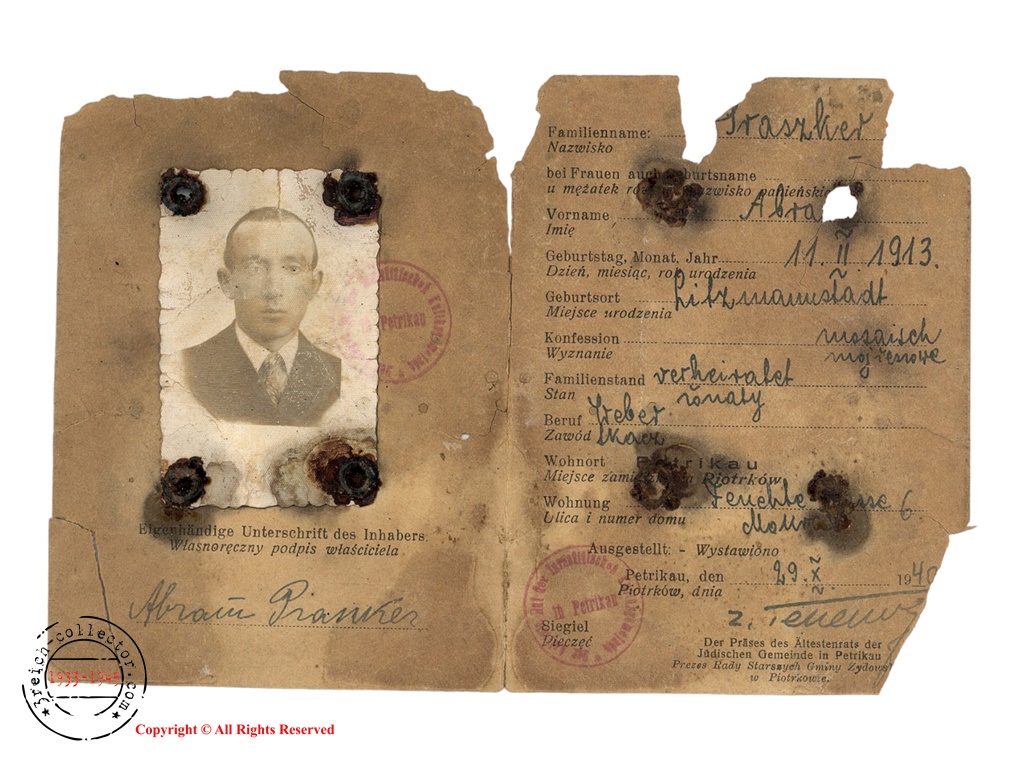 Eigenhändige Unterschrift des Inhabers.
Własnoręczny podpis właściciela
Abram Praszker
Familienname: Praszker
Nazwisko
bei Frauen auch Geburtsname
u mężatek nazwisko panieńskie
Vorname Abra
Imię
Geburtstag, Monat, Jahr 11. II. 1913.
Dzień, miesiąc, rok urodzenia
Geburtsort Litzmannstadt
Miejsce urodzenia
Konfession mosaisch
Wyznanie mojżeszowe
Familienstand verheiratet
Stan żonaty
Beruf Weber
Zawód tkacz
Wohnort Petrikau
Miejsce Piotrków
Wohnung 6
Ulica i numer domu
Ausgestellt: - Wystawiono
Petrikau, den 29. X 1940
Piotrków, dnia
Siegiel
Pieczęć
in Petrikau
in Petrikau
Der Präses des Ältestenrats der
Jüdischen Gemeinde in Petrikau
Prezes Rady Starszych Gminy
w Piotrkowie.
3reich-collector.com
1933-1945
Copyright © All Rights Reserved